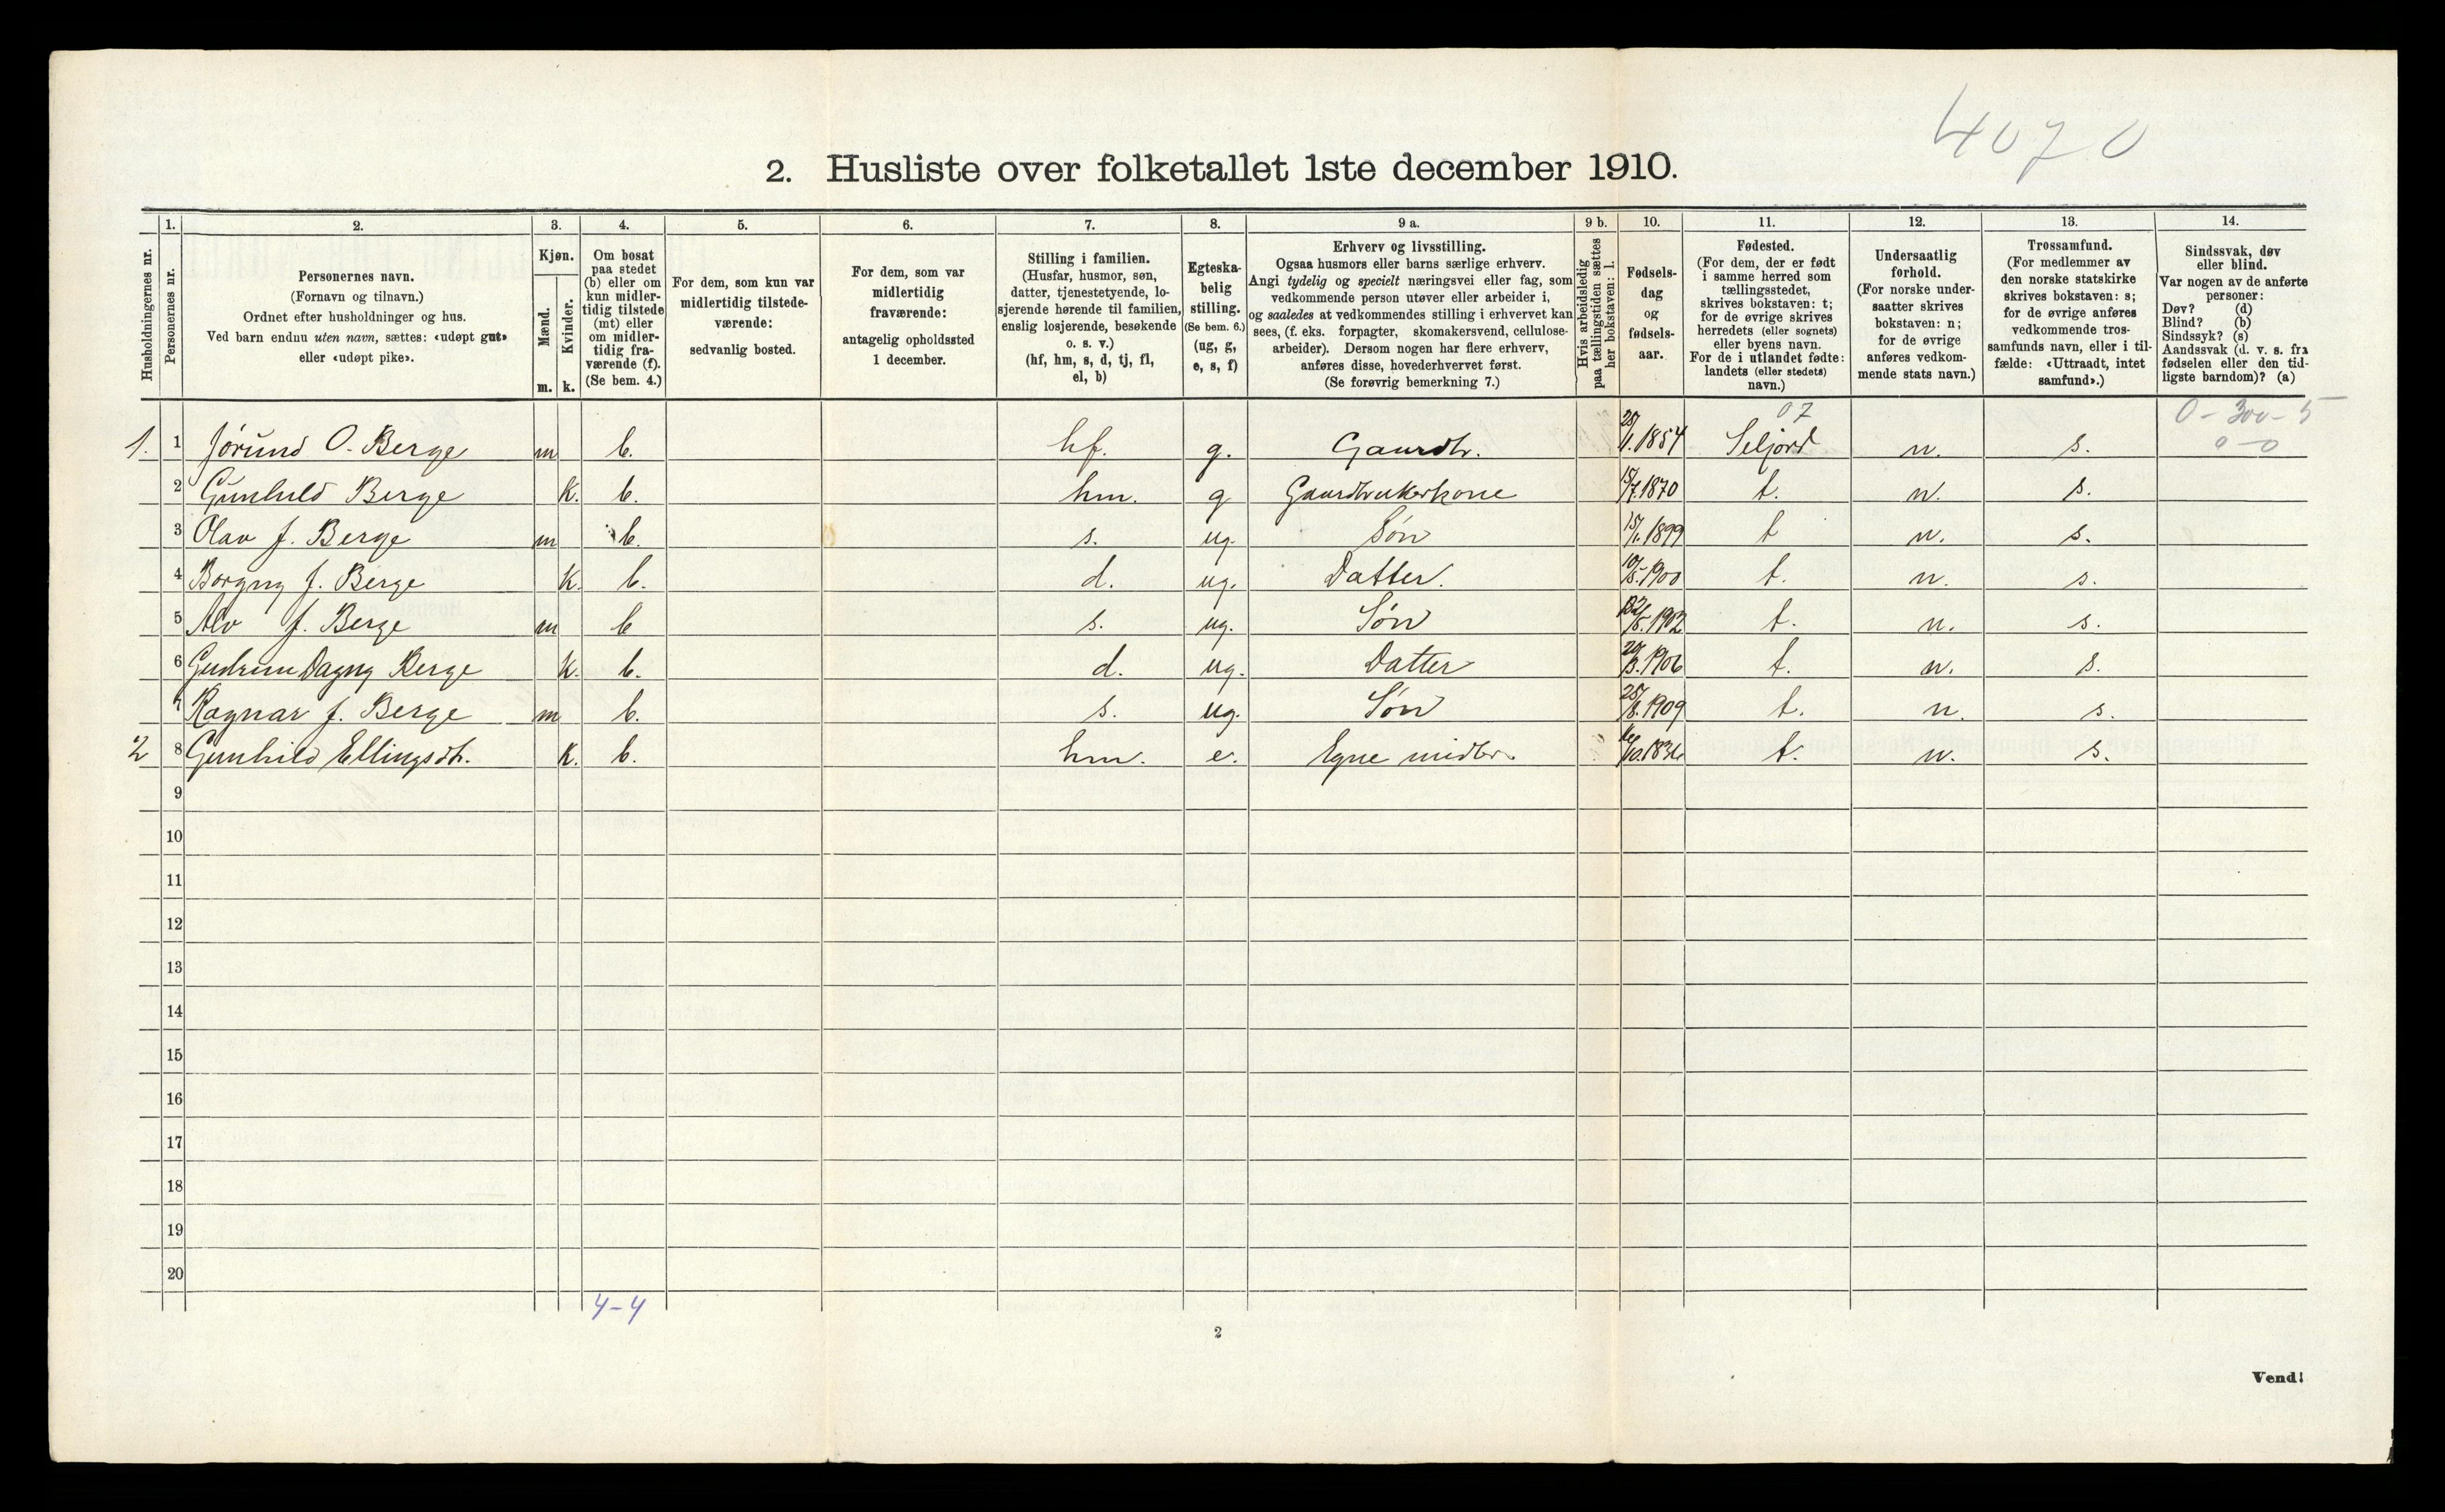 4070
2. Husliste over folketallet 1ste december 1910.
Husholdningernes nr.
1. Personernes nr.
2. Personernes navn.
(Fornavn og tilnavn.)
Ordnet efter husholdninger og hus.
Ved barn endnu uten navn, sættes: «udøpt gut»
eller «udøpt pike».
3. Kjøn.
Mænd. m.
Kvinder. k.
4. Om bosat
paa stedet
(b) eller om
kun midler-
tidig tilstede
(mt) eller
om midler-
tidig fra-
værende (f).
(Se bem. 4.)
5. For dem, som kun var
midlertidig tilstede-
værende:
sedvanlig bosted.
6. For dem, som var
midlertidig
fraværende:
antagelig opholdssted
1 december.
7. Stilling i familien.
(Husfar, husmor, søn,
datter, tjenestetyende, lo-
sjerende hørende til familien,
enslig losjerende, besøkende
o. s. v.)
(hf, hm, s, d, tj, fl,
el, b)
8. Egteska-
belig
stilling.
(Se bem. 6.)
(ug, g,
e, s, f)
9 a. Erhverv og livsstilling.
Ogsaa husmors eller barns særlige erhverv.
Angi tydelig og specielt næringsvei eller fag, som
vedkommende person utøver eller arbeider i,
og saaledes at vedkommendes stilling i erhvervet kan
sees, (f. eks. forpagter, skomakersvend, cellulose-
arbeider). Dersom nogen har flere erhverv,
anføres disse, hovederhvervet først.
(Se forøvrig bemerkning 7.)
9 b. Hvis arbeidsledig
paa tællingstiden sættes
her bokstaven: l.
10. Fødsels-
dag
og
fødsels-
aar.
11. Fødested.
(For dem, der er født
i samme herred som
tællingsstedet,
skrives bokstaven: t;
for de øvrige skrives
herredets (eller sognets)
eller byens navn.
For de i utlandet fødte:
landets (eller stedets)
navn.)
12. Undersaatlig
forhold.
(For norske under-
saatter skrives
bokstaven: n;
for de øvrige
anføres vedkom-
mende stats navn.)
13. Trossamfund.
(For medlemmer av
den norske statskirke
skrives bokstaven: s;
for de øvrige anføres
vedkommende tros-
samfunds navn, eller i til-
fælde: «Uttraadt, intet
samfund».)
14. Sindssvak, døv
eller blind.
Var nogen av de anførte
personer:
Døv? (d)
Blind? (b)
Sindssyk? (s)
Aandssvak (d. v. s. fra
fødselen eller den tid-
ligste barndom)? (a)
07 0-300-5
1. 1 Jørund O. Berge m b. hf. g. Gaardbr. 1854 Seljord n. s. 0-0
2 Gunhild Berge k. b. hm. g Gaardbrukerkone 15/7.1870 t. n. s.
3 Olav J. Berge m b. s. ug. Søn 15/1.1899 t n. s.
4 Borgny J. Berge k. b. d. ug. Datter. 10/5.1900 t. n. s.
5 Alv J. Berge m b s. ug. Søn 1902 t. n. s.
6 Gudrun Dagny Berge k. b. d. ug. Datter 1906 t. n. s.
7 Ragnar J. Berge m b. s. ug. Søn 25/8.1909 t. n. s.
2 8 Gunhild Ellingsdtr. k. b. hm. e. Egne midler. 1836 t. n. s.
9
10
11
12
13
14
15
16
17
18
19
20
4-4
2
Vend!